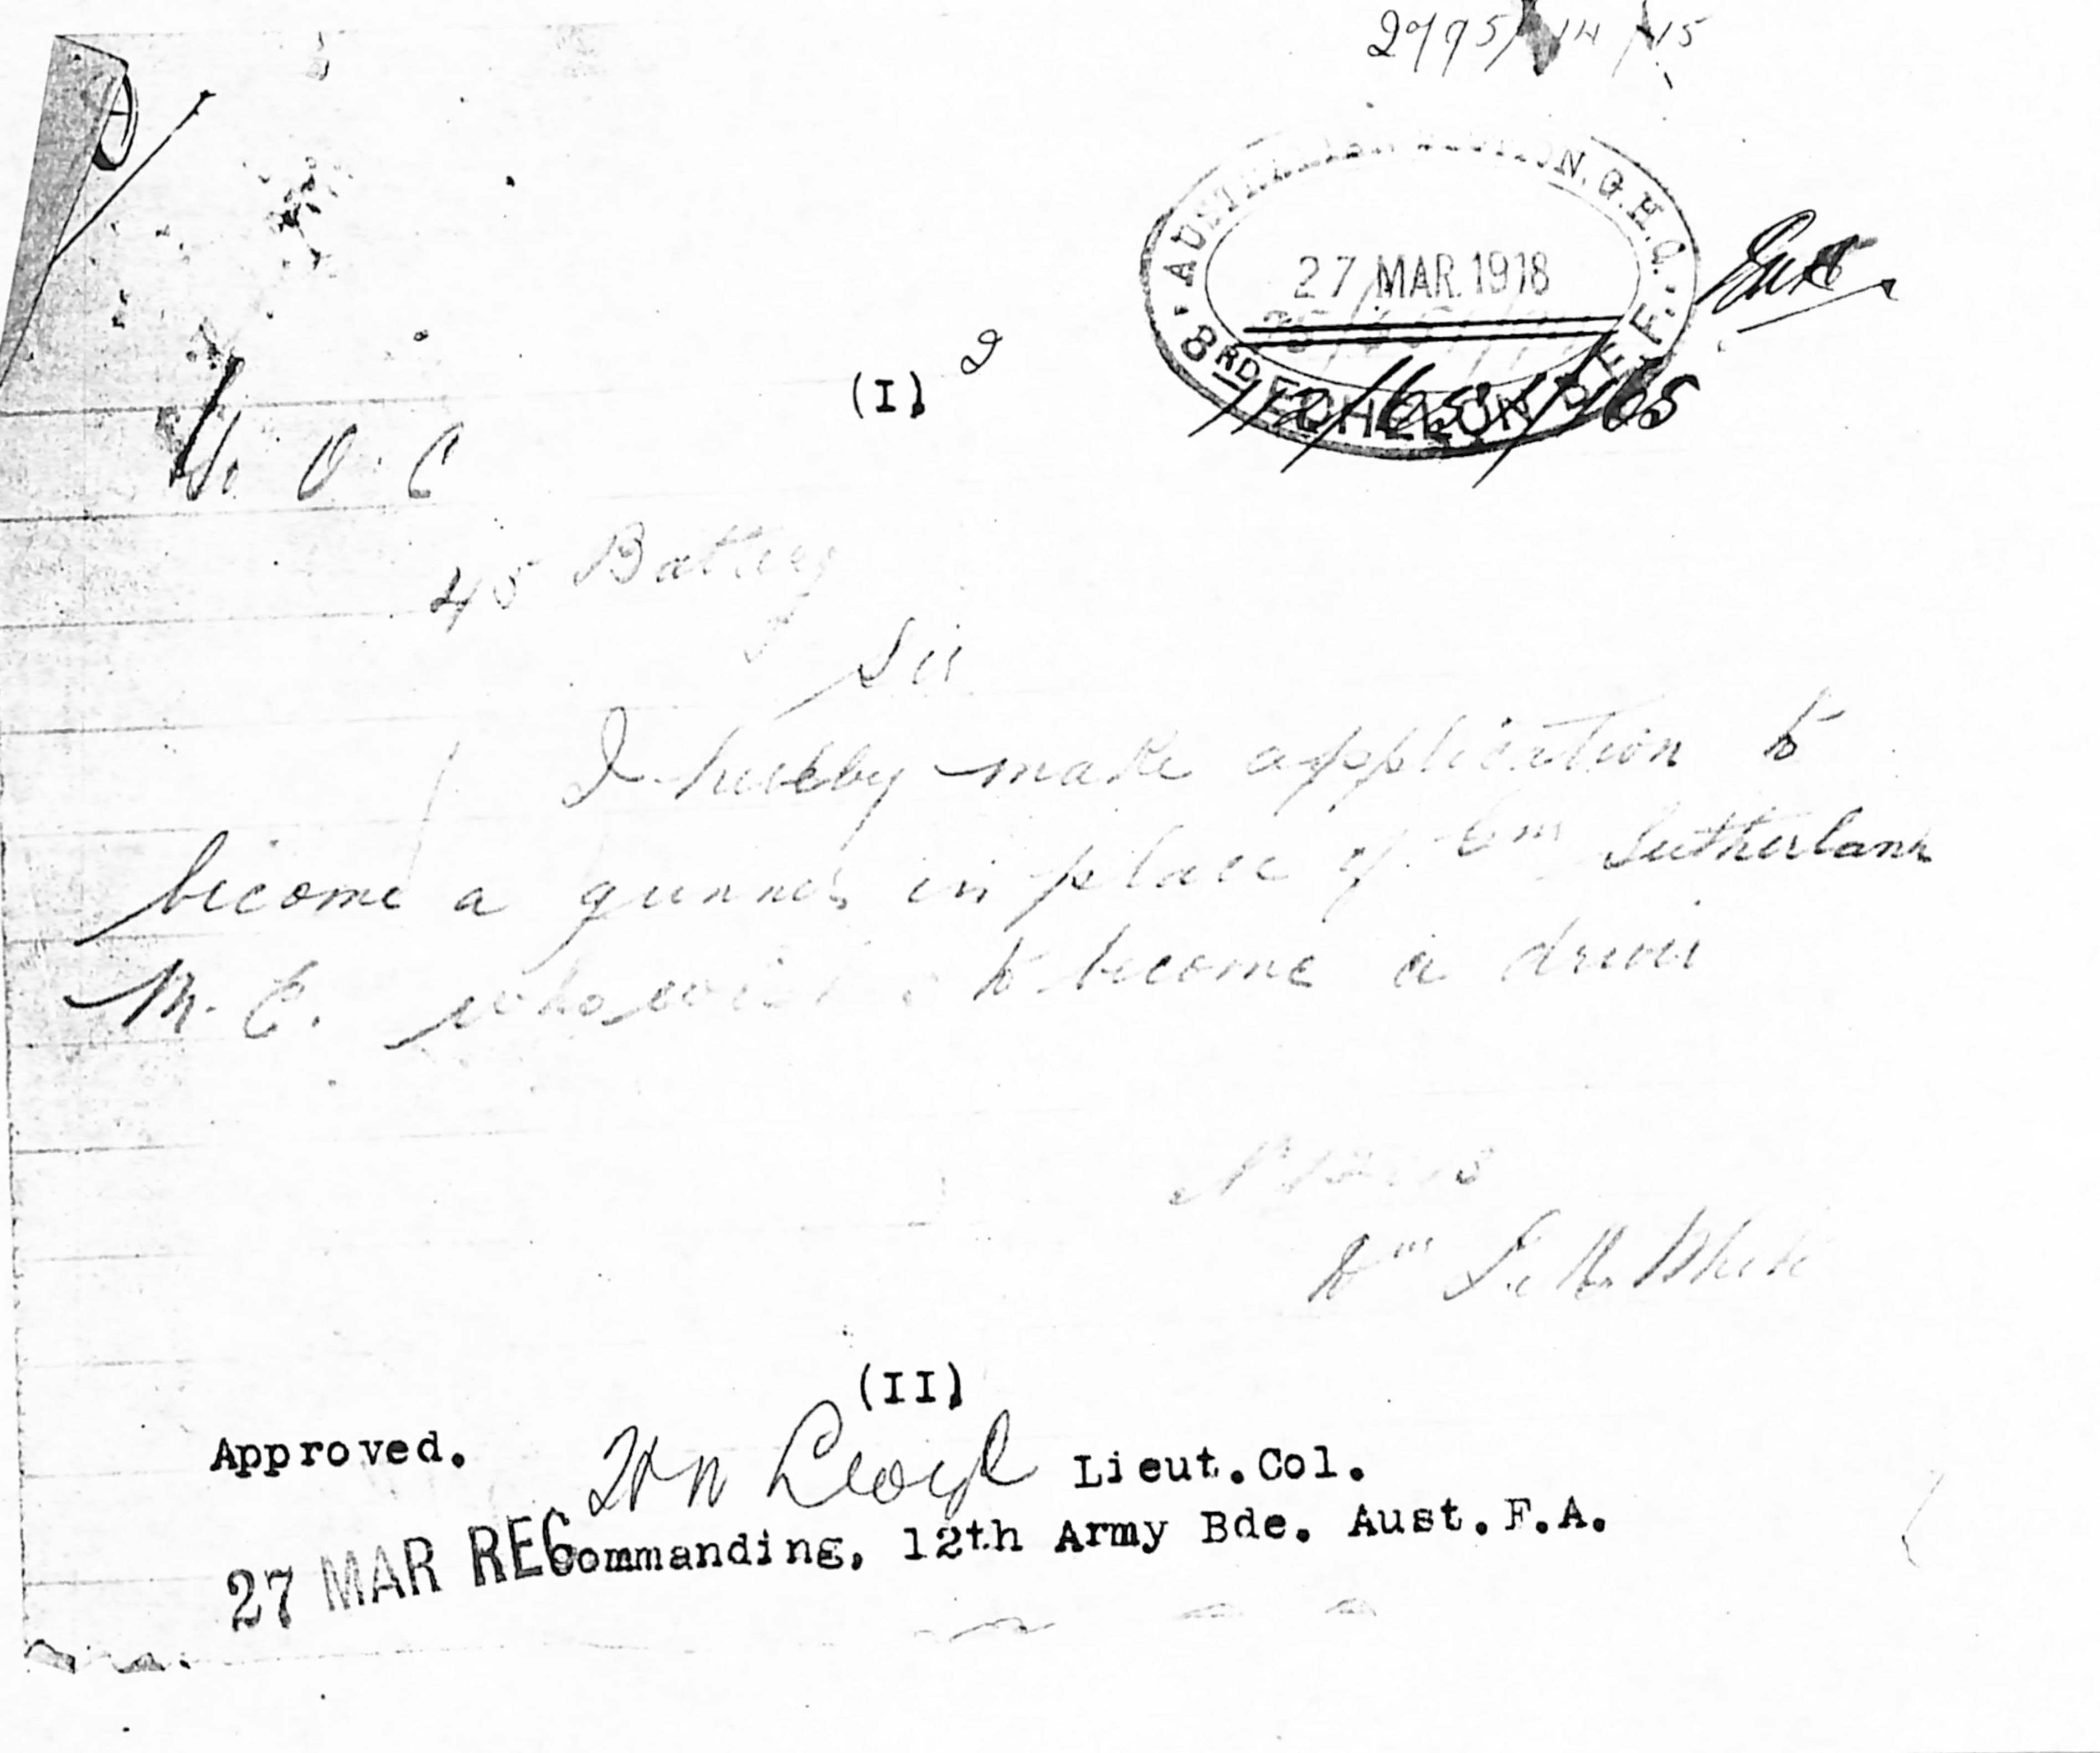 27 MAR. 1918
AUSTRALIAN SECTION, G.H.Q.
3RD ECHELON B.E.F.
(I)
O. C
45 Battery
Sir
I hereby make application to
become a gunner in place of Gnr Sutherland
M. C. who wishes to become a driver
White
(II)
Approved.
Lloyd Lieut.Col.
Commanding, 12th Army Bde. Aust.F.A.
27 MAR REC